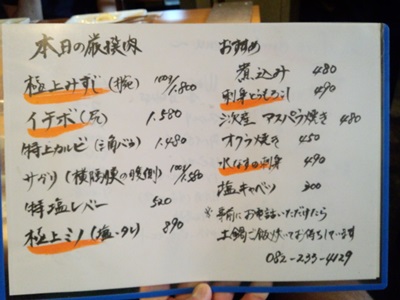 本日の厳撰肉
極上みすじ(腕) 100g/1.800
イチボ(尻) 1.580
特上カルビ(三角バラ) 1.480
サガリ(横隔膜の腰側) 100g/1.580
特塩レバー 520
極上ミノ(塩・タレ) 890
おすすめ
煮込み 480
刺身とうもろこし 490
三次産アスパラ焼き 480
オクラ焼き 450
水なす刺身 490
塩キャベツ 300
※事前にお電話いただけたら
土鍋ご飯炊いてお待ちしています
082-233-4129